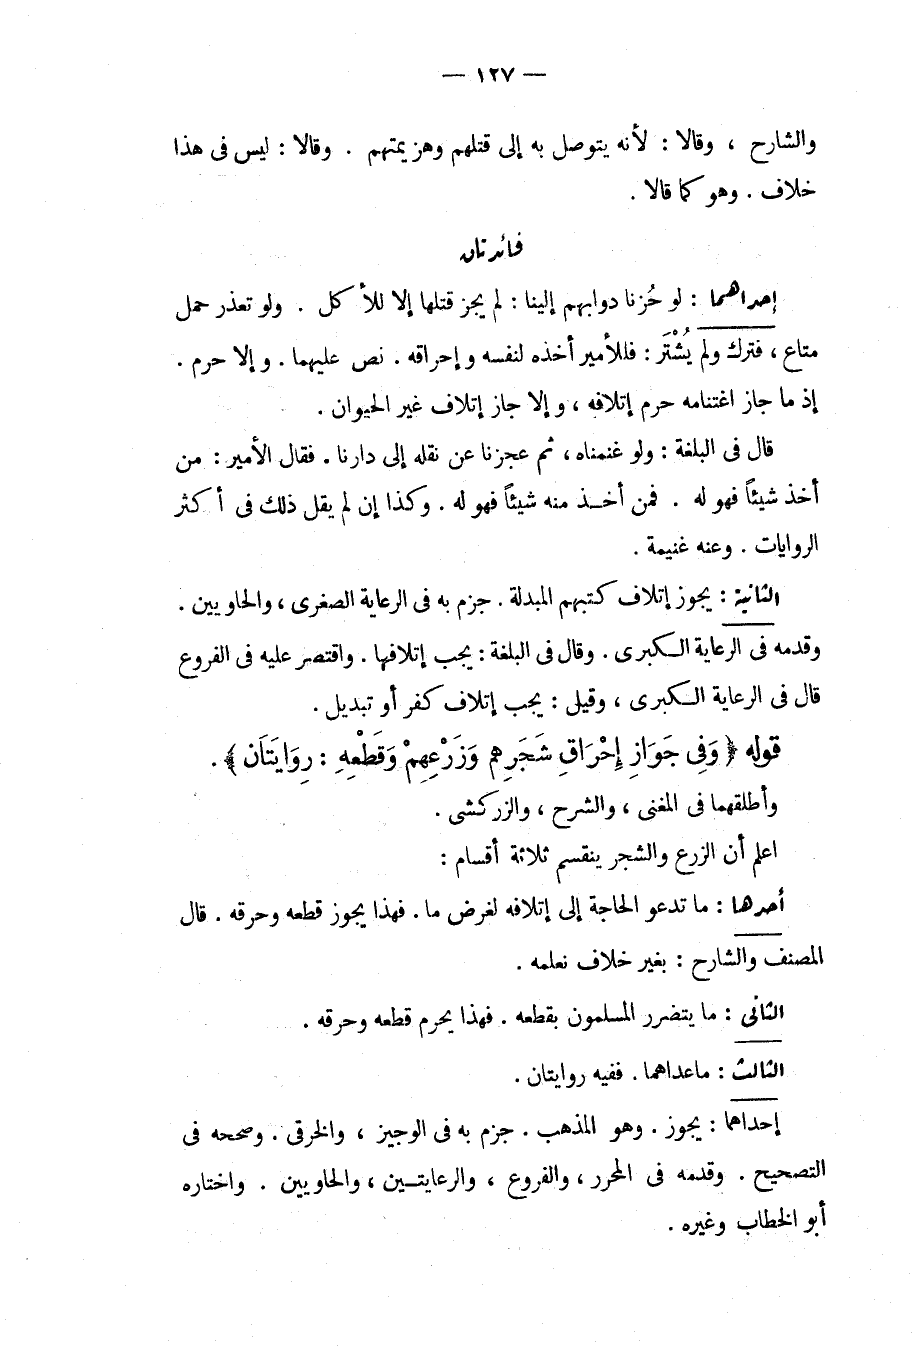 — ١٢٧ —
والشارح ، وقالا : لأنه يتوصل به إلى قتلهم وهزيمتهم . وقالا : ليس فى هذا
خلاف . وهو كما قالا .
فائدتان
إحداهما : لو حُزنا دوابهم إلينا : لم يجز قتلها إلا للأكل . ولو تعذر حمل
متاع ، فترك ولم يُشْتَر : فللأمير أخذه لنفسه وإحراقه . نص عليهما . وإلا حرم .
إذ ما جاز اغتنامه حرم إتلافه ، وإلا جاز إتلاف غير الحيوان .
قال فى البلغة : ولو غنمناه ، ثم عجزنا عن نقله إلى دارنا . فقال الأمير : من
أخذ شيئاً فهو له . فمن أخذ منه شيئاً فهو له . وكذا إن لم يقل ذلك فى أكثر
الروايات . وعنه غنيمة .
الثانية : يجوز إتلاف كتبهم المبدلة . جزم به فى الرعاية الصغرى ، والحاويين .
وقدمه فى الرعاية الكبرى . وقال فى البلغة : يجب إتلافها . واقتصر عليه فى الفروع
قال فى الرعاية الكبرى ، وقيل : يجب إتلاف كفر أو تبديل .
قوله ﴿ وَفِى جَوَازِ إِحْرَاقِ شَجَرِهِم وَزَرْعِهِمْ وَقَطْعِهِ : رِوَايَتَان ﴾ .
وأطلقهما فى المغنى ، والشرح ، والزركشى .
اعلم أن الزرع والشجر ينقسم ثلاثة أقسام :
أحدها : ما تدعو الحاجة إلى إتلافه لغرض ما . فهذا يجوز قطعه وحرقه . قال
المصنف والشارح : بغير خلاف نعلمه .
الثانى : ما يتضرر المسلمون بقطعه . فهذا يحرم قطعه وحرقه .
الثالث : ماعداهما . ففيه روايتان .
إحداهما : يجوز . وهو المذهب . جزم به فى الوجيز ، والخرقى . وصححه فى
التصحيح . وقدمه فى المحرر ، والفروع ، والرعايتين ، والحاويين . واختاره
أبو الخطاب وغيره .